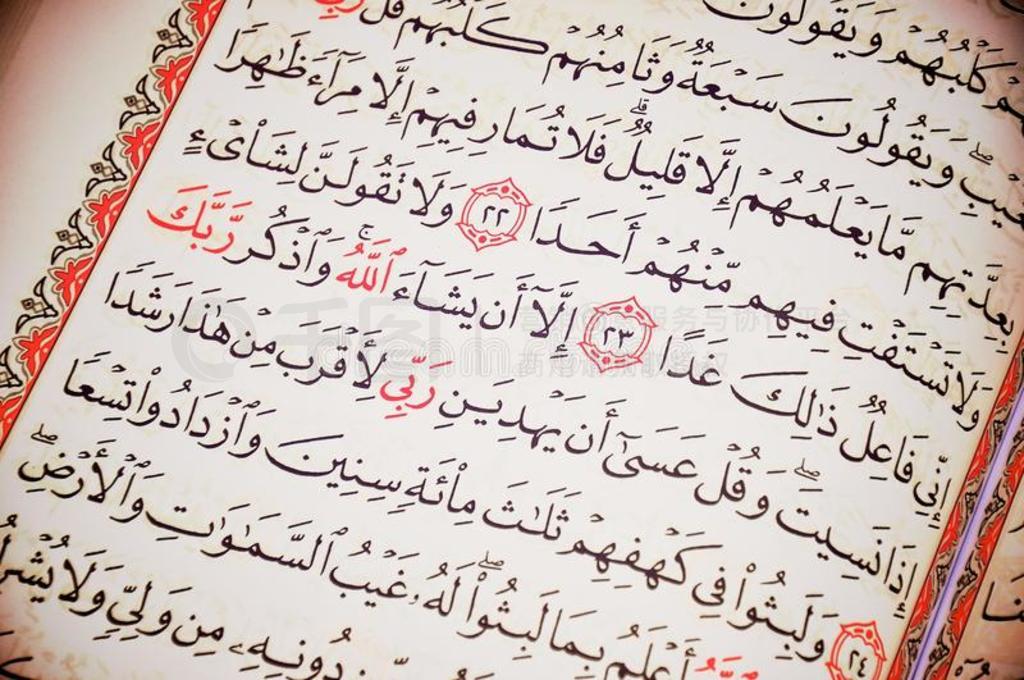 كَلْبُهُمْ وَيَقُولُونَ
وَيَقُولُونَ سَبْعَةٌ وَثَامِنُهُمْ كَلْبُهُمْ قُل
بِعِدَّتِهِم مَّا يَعْلَمُهُمْ إِلَّا قَلِيلٌ ۗ فَلَا تُمَارِ فِيهِمْ إِلَّا مِرَآءً ظَٰهِرًا
وَلَا تَسْتَفْتِ فِيهِم مِّنْهُمْ أَحَدًا ٢٢ وَلَا تَقُولَنَّ لِشَاْىْءٍ
إِنِّي فَاعِلٌ ذَٰلِكَ غَدًا ٢٣ إِلَّآ أَن يَشَآءَ ٱللَّهُ ۚ وَٱذْكُر رَّبَّكَ
إِذَا نَسِيتَ ۖ وَقُلْ عَسَىٰٓ أَن يَهْدِيَنِ رَبِّي لِأَقْرَبَ مِنْ هَٰذَا رَشَدًا
٢٤ وَلَبِثُوا۟ فِي كَهْفِهِمْ ثَلَٰثَ مِا۟ئَةٍ سِنِينَ وَٱزْدَادُوا۟ تِسْعًا
أَعْلَمُ بِمَا لَبِثُوا۟ ۖ لَهُۥ غَيْبُ ٱلسَّمَٰوَٰتِ وَٱلْأَرْضِ ۖ
دُونِهِۦ مِن وَلِيٍّ وَلَا